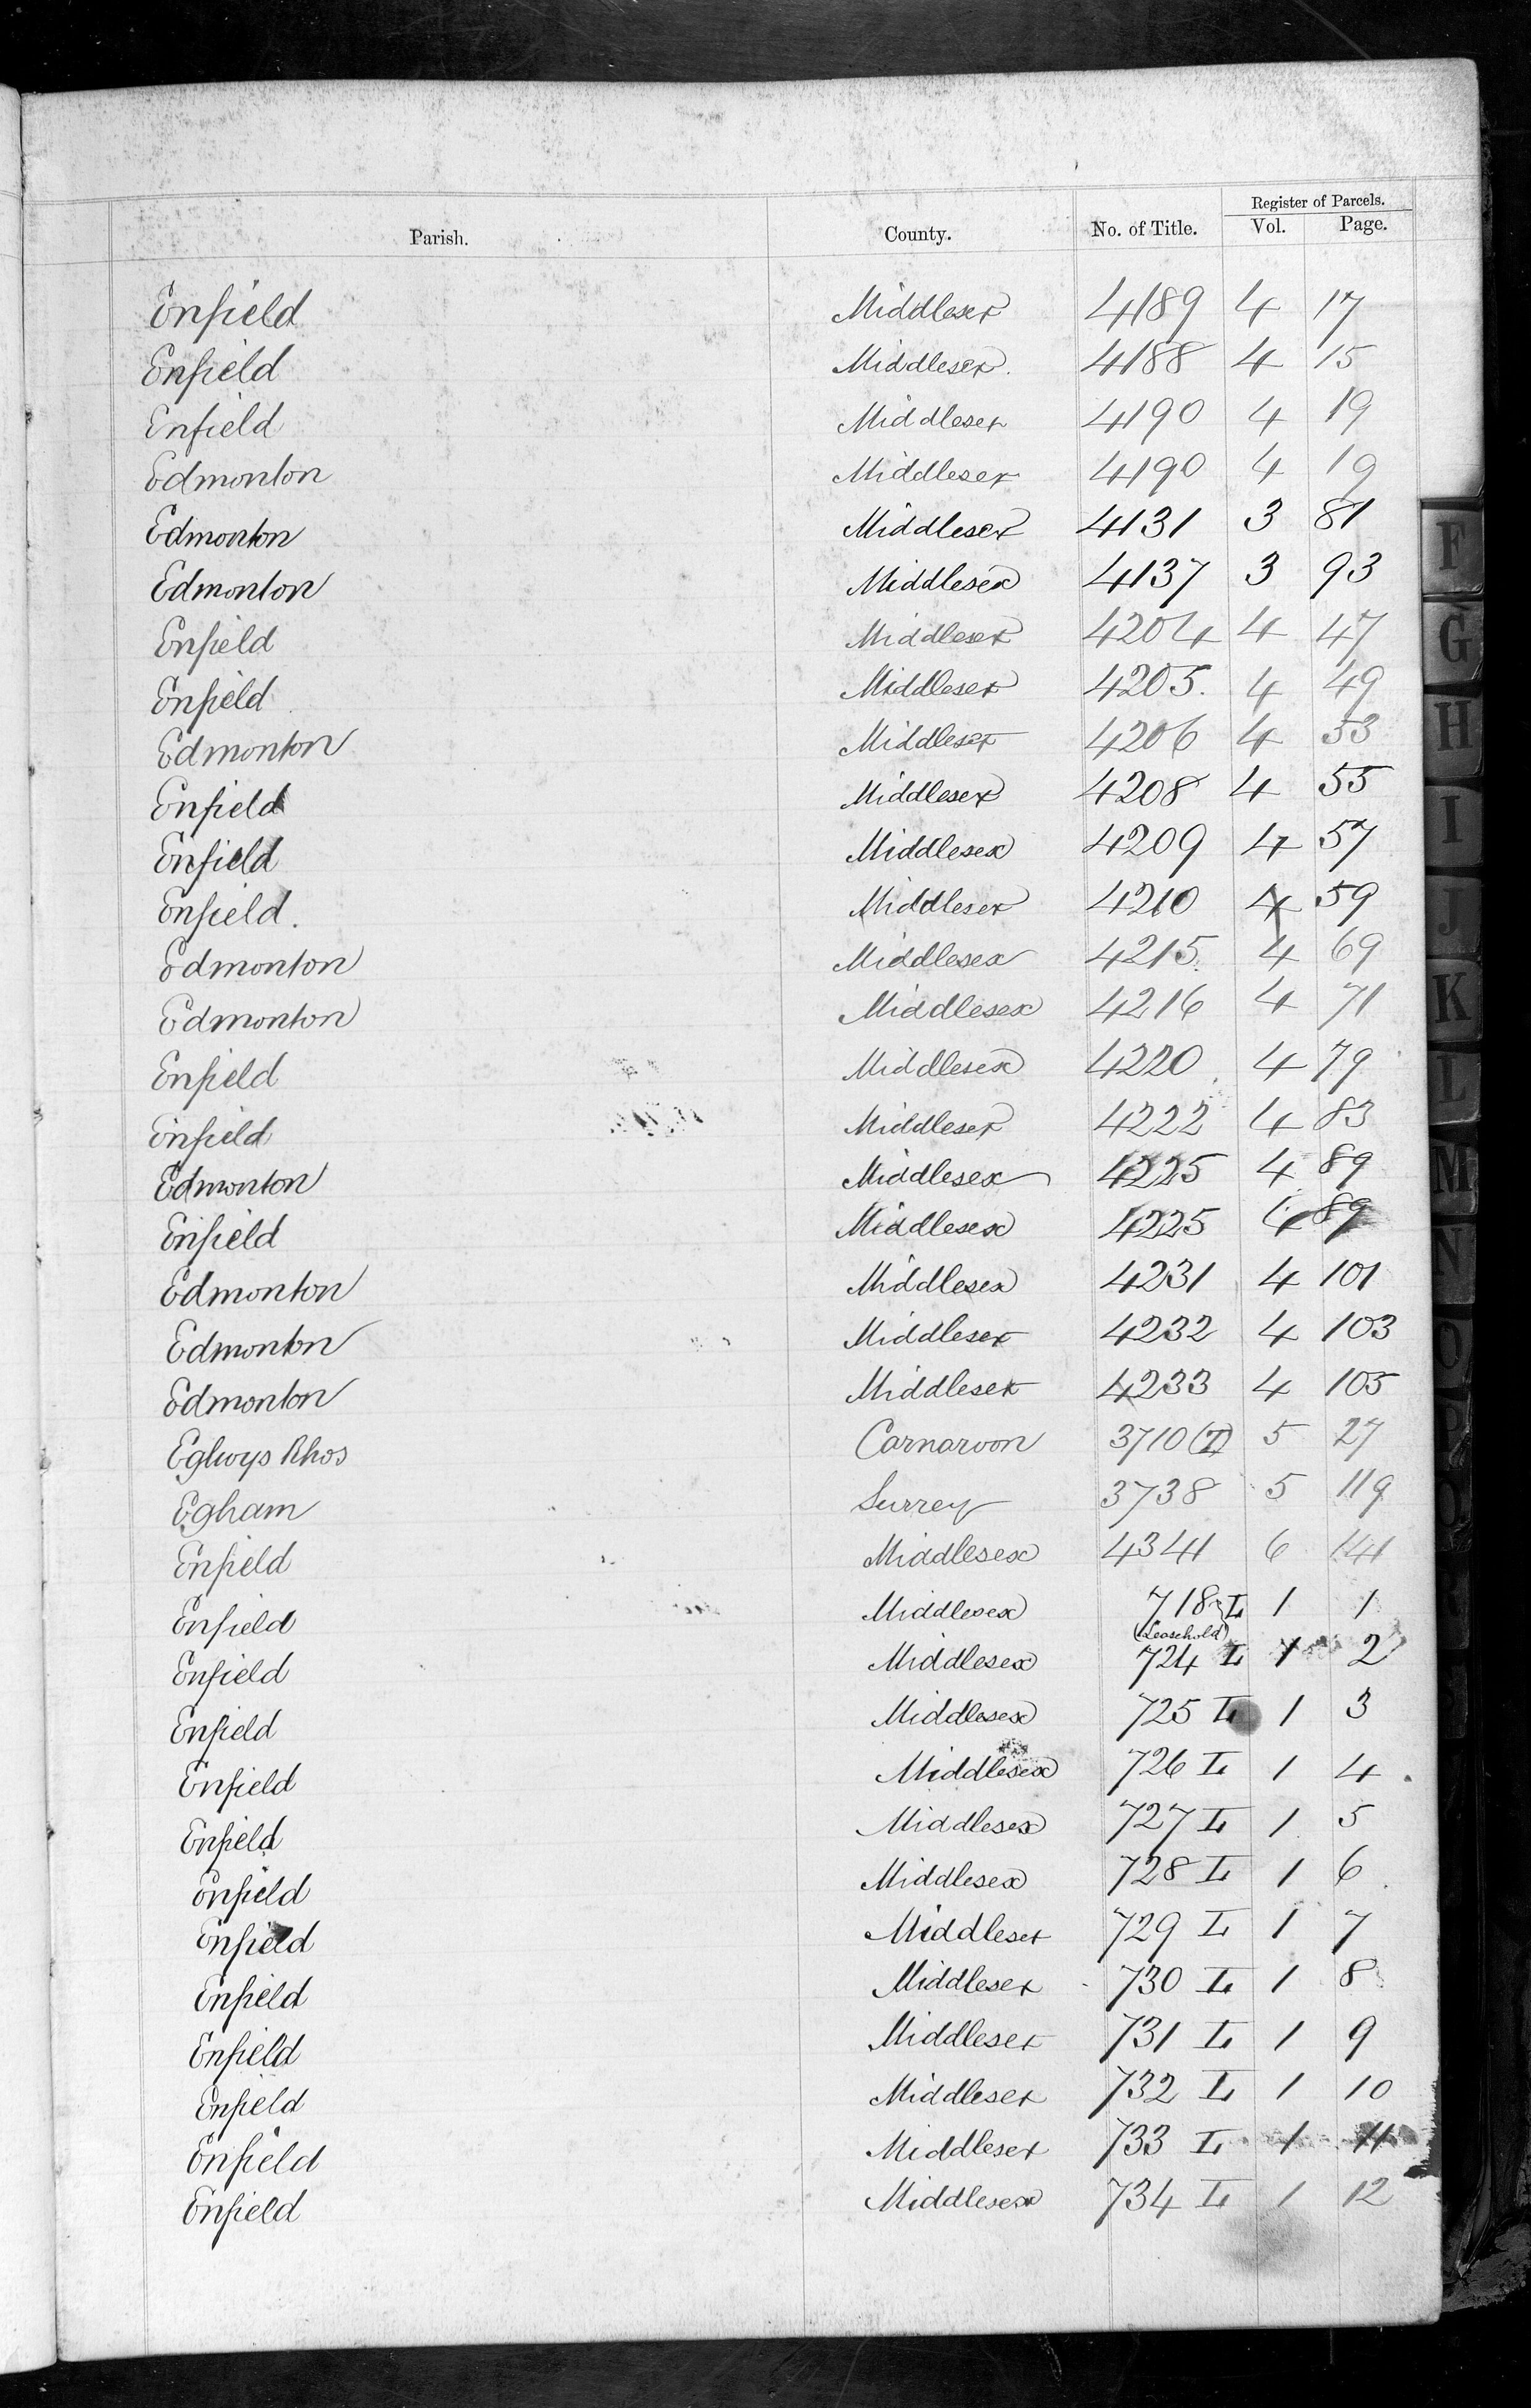 Register of Parcels.
Parish. County. No. of Title. Vol. Page.
Enfield Middlesex 4189 4 17
Enfield Middlesex. 4188 4 15
Enfield Middlesex 4190 4 19
Edmonton Middlesex 4190 4 19
Edmonton Middlesex 4131 3 81
Edmonton Middlesex 4137 3 93
Enfield Middlesex 4204 4 47
Enfield Middlesex 4205. 4 49
Edmonton Middlesex 4206 4 53
Enfield Middlesex 4208 4 55
Enfield Middlesex 4209 4 57
Enfield. Middlesex 4210 4 59
Edmonton Middlesex 4215. 4 69
Edmonton Middlesex 4216 4 71
Enfield Middlesex 4220 4 79
Enfield Middlesex 4222 4 83
Edmonton Middlesex 4225 4 89
Enfield Middlesex 4225 4 89
Edmonton Middlesex 4231 4 101
Edmonton Middlesex 4232 4 103
Edmonton Middlesex 4233 4 105
Eglwys Rhos Carnarvon 3710 (I) 5 27
Egham Surrey 3738 5 119
Enfield Middlesex 4341 6 141
Enfield Middlesex 718 L 1 1
(Leasehold)
Enfield Middlesex 724 L 1 2
Enfield Middlesex 725 L 1 3
Enfield Middlesex 726 L 1 4
Enfield Middlesex 727 L 1 5
Enfield Middlesex 728 L 1 6
Enfield Middlesex 729 L 1 7
Enfield Middlesex 730 L 1 8
Enfield Middlesex 731 L 1 9
Enfield Middlesex 732 L 1 10
Enfield Middlesex 733 L 1 11
Enfield Middlesex 734 L 1 12
F
G
H
I
J
K
L
M
N
O
P
Q
R